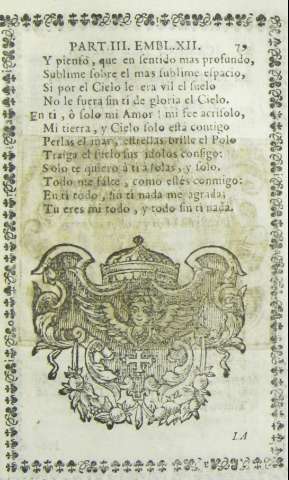 PART. III. EMBL. XII. 79
Y pienso, que en sentido mas profundo,
Sublime sobre el mas sublime espacio,
Si por el Cielo le era vil el suelo
No le fuera sin ti de gloria el Cielo.
En ti, ò solo mi Amor! mi fee acrisolo,
Mi tierra, y Cielo solo està contigo
Perlas el mar, estrellas brille el Polo
Traiga el suelo sus idolos consigo:
Solo te quiero à ti à solas, y solo.
Todo me falte, como estès conmigo:
En ti todo, sin ti nada me agrada;
Tu eres mi todo, y todo sin ti nada.
LA